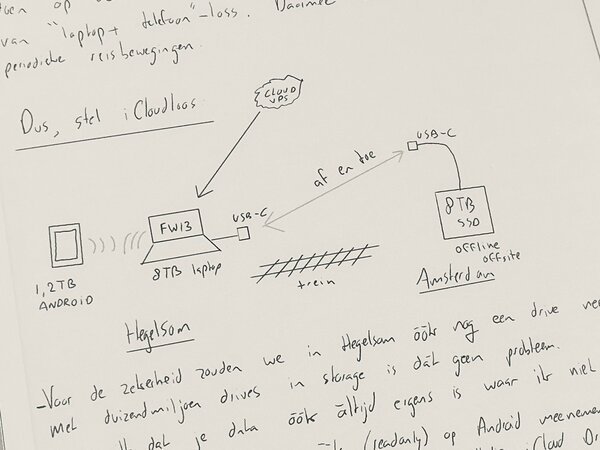 op
van "laptop + telefoon"-loss. Daarmee
periodieke reisbewegingen.
Dus, stel iCloudloos
CLOUD
VPS
USB-C
af en toe
USB-C
FW13
8TB
SSD
8TB laptop
offline
offsite
1,2TB
ANDROID
trein
Amsterdam
Hegelsom
-Voor de zekerheid zouden we in Hegelsom óók nog een drive
met duizendmiljoen drives in storage is dát geen probleem.
dat je data óók altijd ergens is waar ik niet
(readonly) op Android meenemen
iCloud